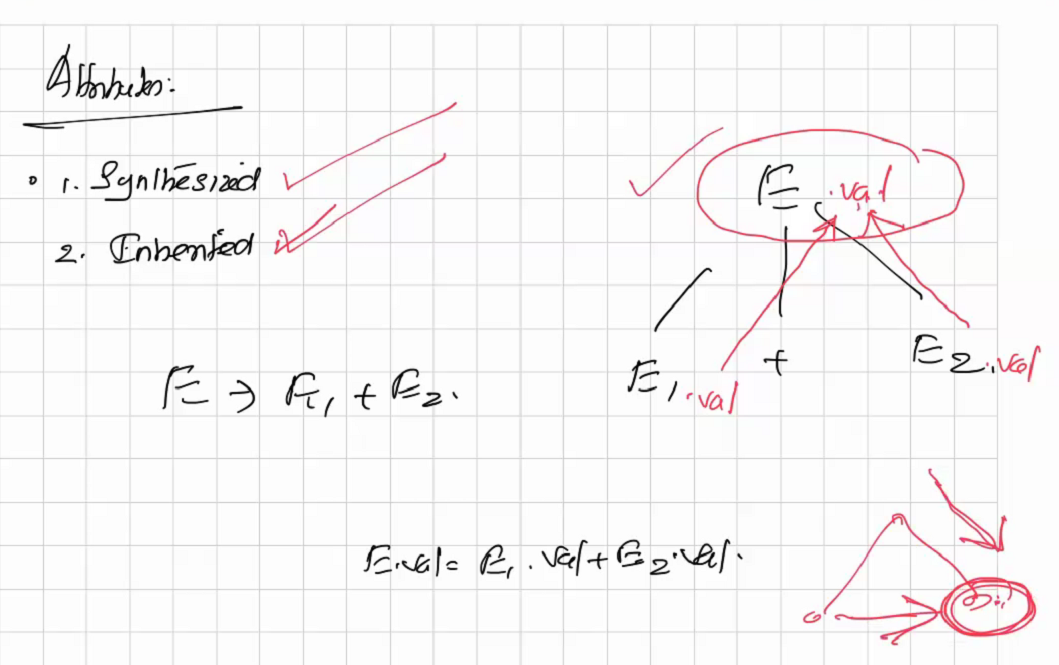 Attributes:
1. Synthesized
2. Inherited
E → E1 + E2.
E.val
E1.val + E2.val
E.val = E1.val + E2.val.